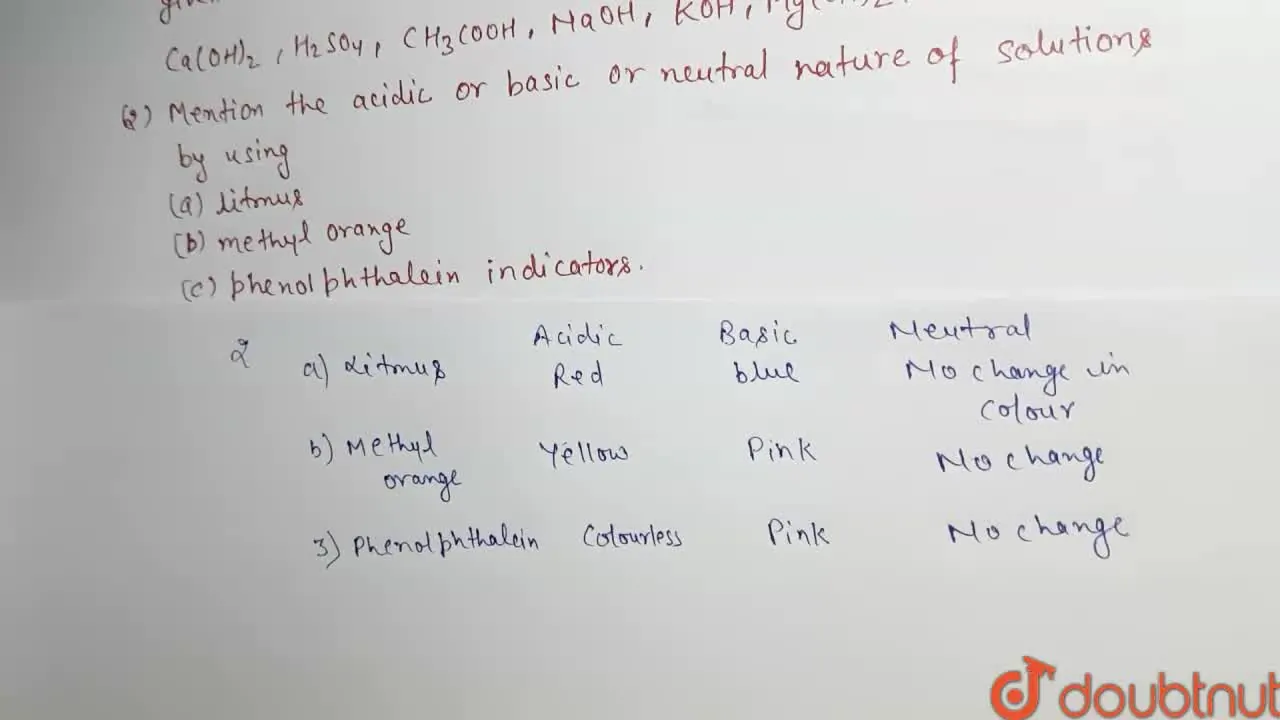 Ca(OH)2, H2SO4, CH3COOH, NaOH, KOH,
(2) Mention the acidic or basic or neutral nature of solutions
by using
(a) litmus
(b) methyl orange
(c) phenolphthalein indicators.
2 Acidic Basic Neutral
a) Litmus Red blue No change in
colour
b) Methyl Yellow Pink No change
orange
3) Phenolphthalein Colourless Pink No change
doubtnut